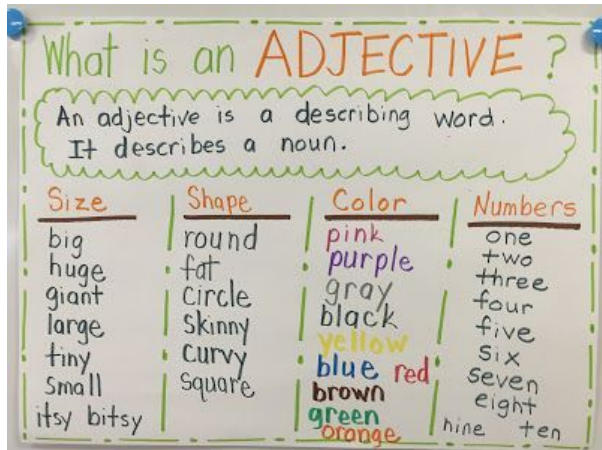 What is an ADJECTIVE ?
An adjective is a describing word.
It describes a noun.
Size
big
huge
giant
large
tiny
small
itsy bitsy
Shape
round
fat
circle
skinny
curvy
square
Color
pink
purple
gray
black
yellow
blue red
brown
green
orange
Numbers
one
two
three
four
five
six
seven
eight
nine ten